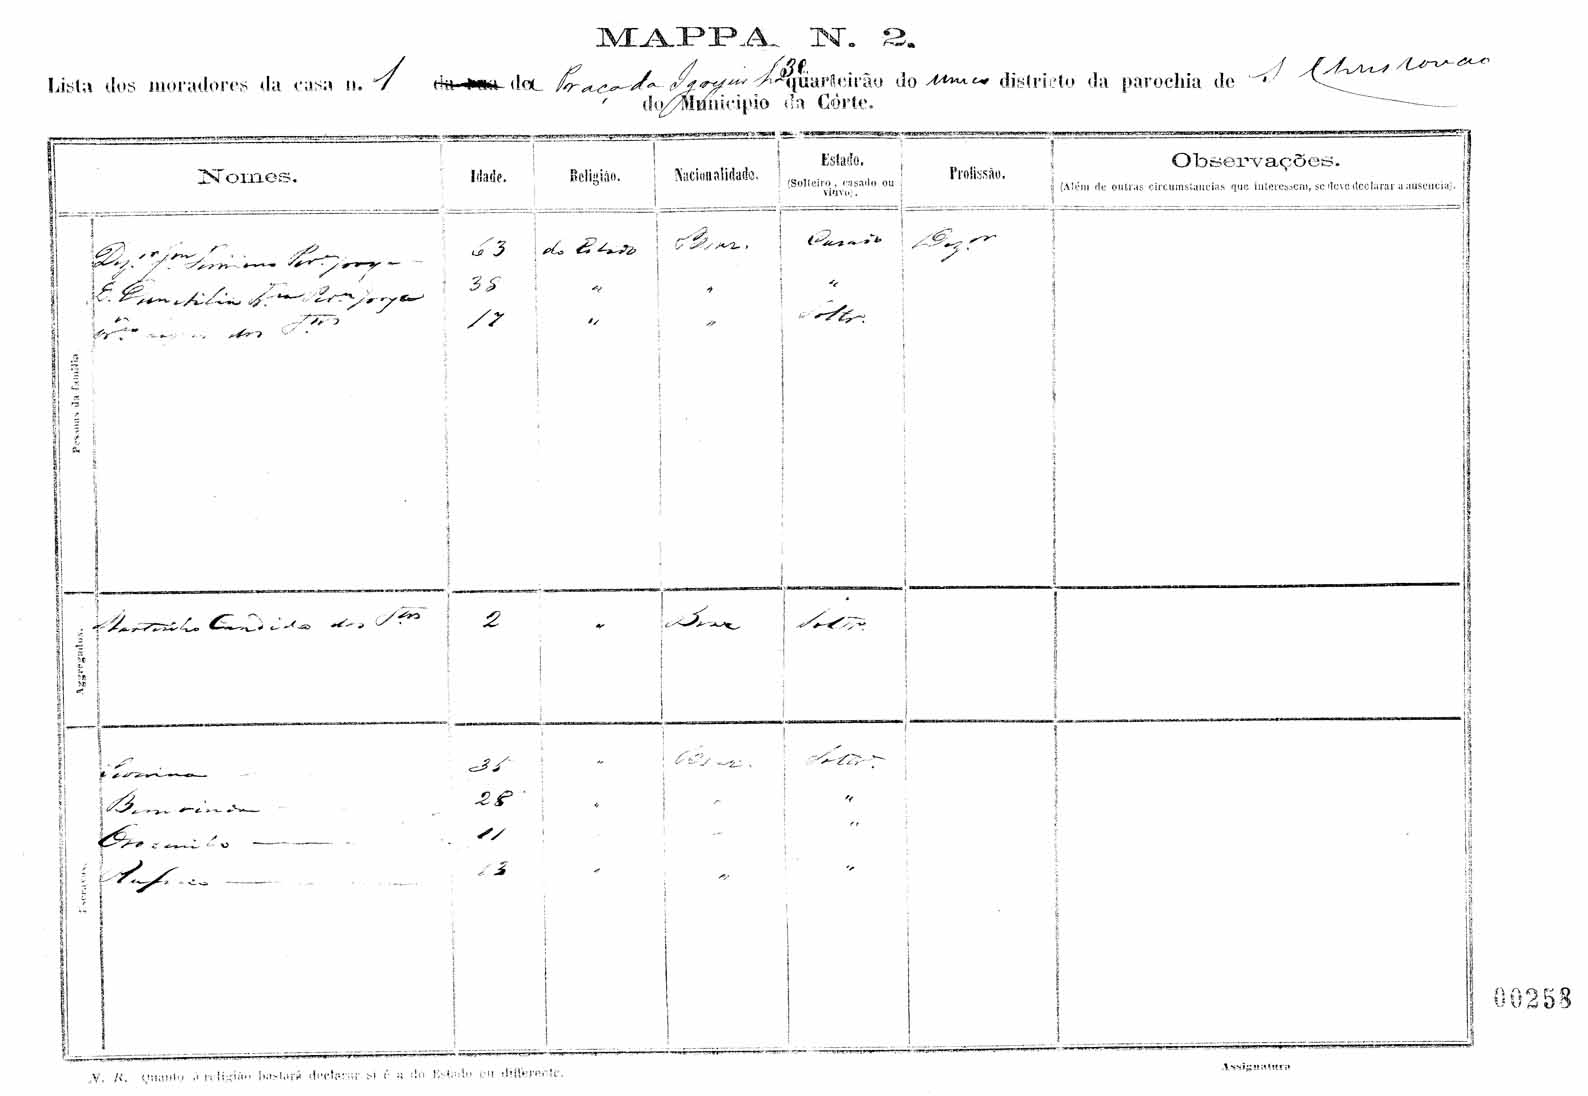 MAPPA N. 2.
Lista dos moradores da casa n. 1 da rua da Praça da Igreja 3º quarteirão do unico districto da parochia de S Christovão
do Municipio da Côrte.
Nomes. Idade. Religião. Nacionalidade. Estado. (Solteiro, casado ou viuvo). Profissão. Observações. (Além de outras circumstancias que interessem, se deve declarar a ausencia).
Pessoas da familia
Dez.or 63 do Estado Braz. Casado Dez.or
D. Per.a Jorge 38 " " "
dos S.tos 17 " " Soltr.
Aggregados.
Martinho Candido dos S.tos 2 " Braz Soltr.
Escravos.
35 " Braz. Soltr.
Bemvinda 28 " " "
11 "
Rufino 13 " " "
00258
N. R. Quanto á religião bastará declarar si é a do Estado ou differente.
Assignatura